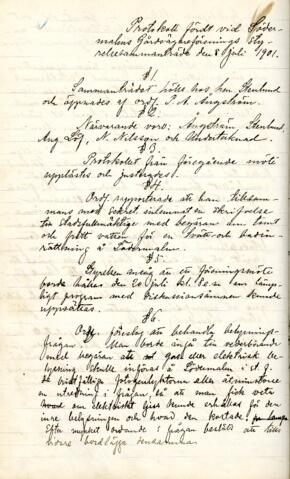 Protokoll fördt vid Söder-
malms Gårdsägareförenings Sty-
relsesammanträde den 8 Juli 1901.
§1
Sammanträdet hölls hos hrr Stenlund
och öppnades af ordf. P. A. Ångström.
§2.
Närvarande voro: Ångström Stenlund,
Aug. Löf, N. Nilsson och Undertecknad.
§3.
Protokollet från föregående möte
upplästes och justerades.
§4.
Ordf. rapporterade att han tillsam-
mans med Sekret. inlemnat en skrifvelse
till stadsfullmäktige med begäran om tomt
och fritt vatten för en Tvätt och badin-
rättning å Södermalm.
§5.
Styrelsen ansåg att ett föreningsmöte
borde hållas den 20 juli kl. 8 e.m. ett lämp-
ligt program med diskussionsämnen skulle
uppsättas.
§6.
Ordf. förslag att behandla belysnings-
frågan. Man borde ingå till
med begäran att gas eller elektrisk be-
lysning skulle införas å Södermalm i st. f.
de eller åtminstone
en utredning i frågan, så att man fick veta
hvad om elektriskt ljus kunde erhållas för den
inre belysningen och hvad den kostade.
Efter mycket ordande i frågan beslöts att tills
vidare bordlägga densamma.